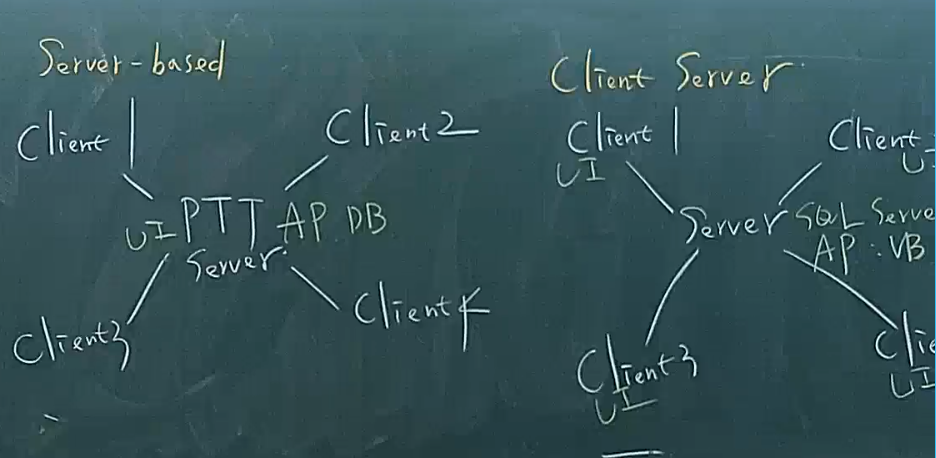 Server-based
Client 1
Client2
UI PTT AP DB
Server
Client3
Client4
Client Server
Client 1
UI
Client
U
Server SQL Serve
AP : VB
Client3
UI
Clie
UI